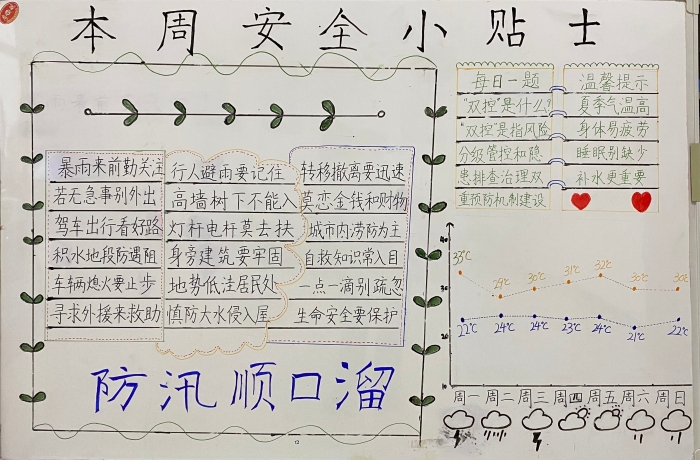 本周安全小贴士
暴雨来前勤关注
若无急事别外出
驾车出行看好路
积水地段防遇阻
车辆熄火要止步
寻求外援来救助
行人避雨要记住
高墙树下不能入
灯杆电杆莫去扶
身旁建筑要牢固
地势低洼居民处
慎防大水侵入屋
转移撤离要迅速
莫恋金钱和财物
城市内涝防为主
自救知识常入目
一点一滴别疏忽
生命安全要保护
防汛顺口溜
每日一题
"双控"是什么?
"双控"是指风险
分级管控和隐
患排查治理双
重预防机制建设
温馨提示
夏季气温高
身体易疲劳
睡眠别缺少
补水更重要
40
30
20
10
33℃ 29℃ 30℃ 31℃ 32℃ 30℃ 30℃
22℃ 24℃ 24℃ 23℃ 24℃ 21℃ 22℃
周一 周二 周三 周四 周五 周六 周日